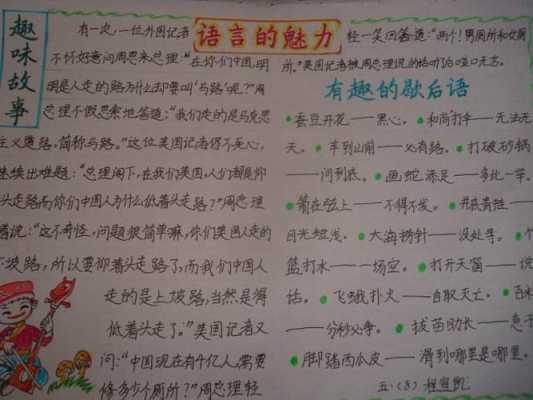 趣味故事
语言的魅力
有一次,一位外国记者
不怀好意问周恩来总理:"在你们中国,明
明是人走的路为什么却要叫'马路'呢?"周
总理不假思索地答道:"我们走的是马克思
主义道路,简称马路。"这位美国记者得不死心,
续出难题:"总理阁下,在我们美国,人们都是仰
头走路,而你们中国人为什么低着头走路?"周总理
着说:"这不奇怪,问题很简单嘛,你们美国人走的
坡路,所以要仰着头走路了,而我们中国人
走的是上坡路,当然是得
低着头走了。"美国记者又
问:"中国现在有4亿人,需要
修多少个厕所?"周总理轻
轻一笑回答道:"两个!男厕所和女厕
所。"美国记者被周总理说的哑口无言。
有趣的歇后语
蚕豆开花——黑心。和尚打伞——无法无
天。车到山前——必有路。打破砂锅
——问到底。画蛇添足——多此一举。
箭在弦上——不得不发。井底青蛙——
目光短浅。大海捞针——没处寻。
篮打水——一场空。打开天窗——说
话。飞蛾扑火——自取灭亡。百米
——分秒必争。拔苗助长——急于
脚踏西瓜皮——滑到哪里是哪里。
五.(8)